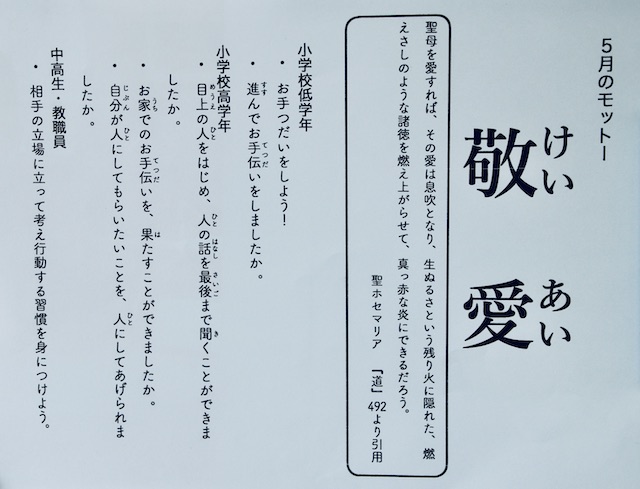 5月のモットー
敬愛
けいあい
聖母を愛すれば、その愛は息吹となり、生ぬるさという残り火に隠れた、燃
えさしのような諸徳を燃え上がらせて、真っ赤な炎にできるだろう。
聖ホセマリア 『道』492より引用
小学校低学年
・ お手つだいをしよう！
・ 進んでお手伝いをしましたか。
すす てつだ
小学校高学年
・ 目上の人をはじめ、人の話を最後まで聞くことができま
めうえ ひと ひと はなし さいご き
したか。
・ お家でのお手伝いを、果たすことができましたか。
うち てつだ は
・ 自分が人にしてもらいたいことを、人にしてあげられま
じぶん ひと ひと
したか。
中高生・教職員
・ 相手の立場に立って考え行動する習慣を身につけよう。